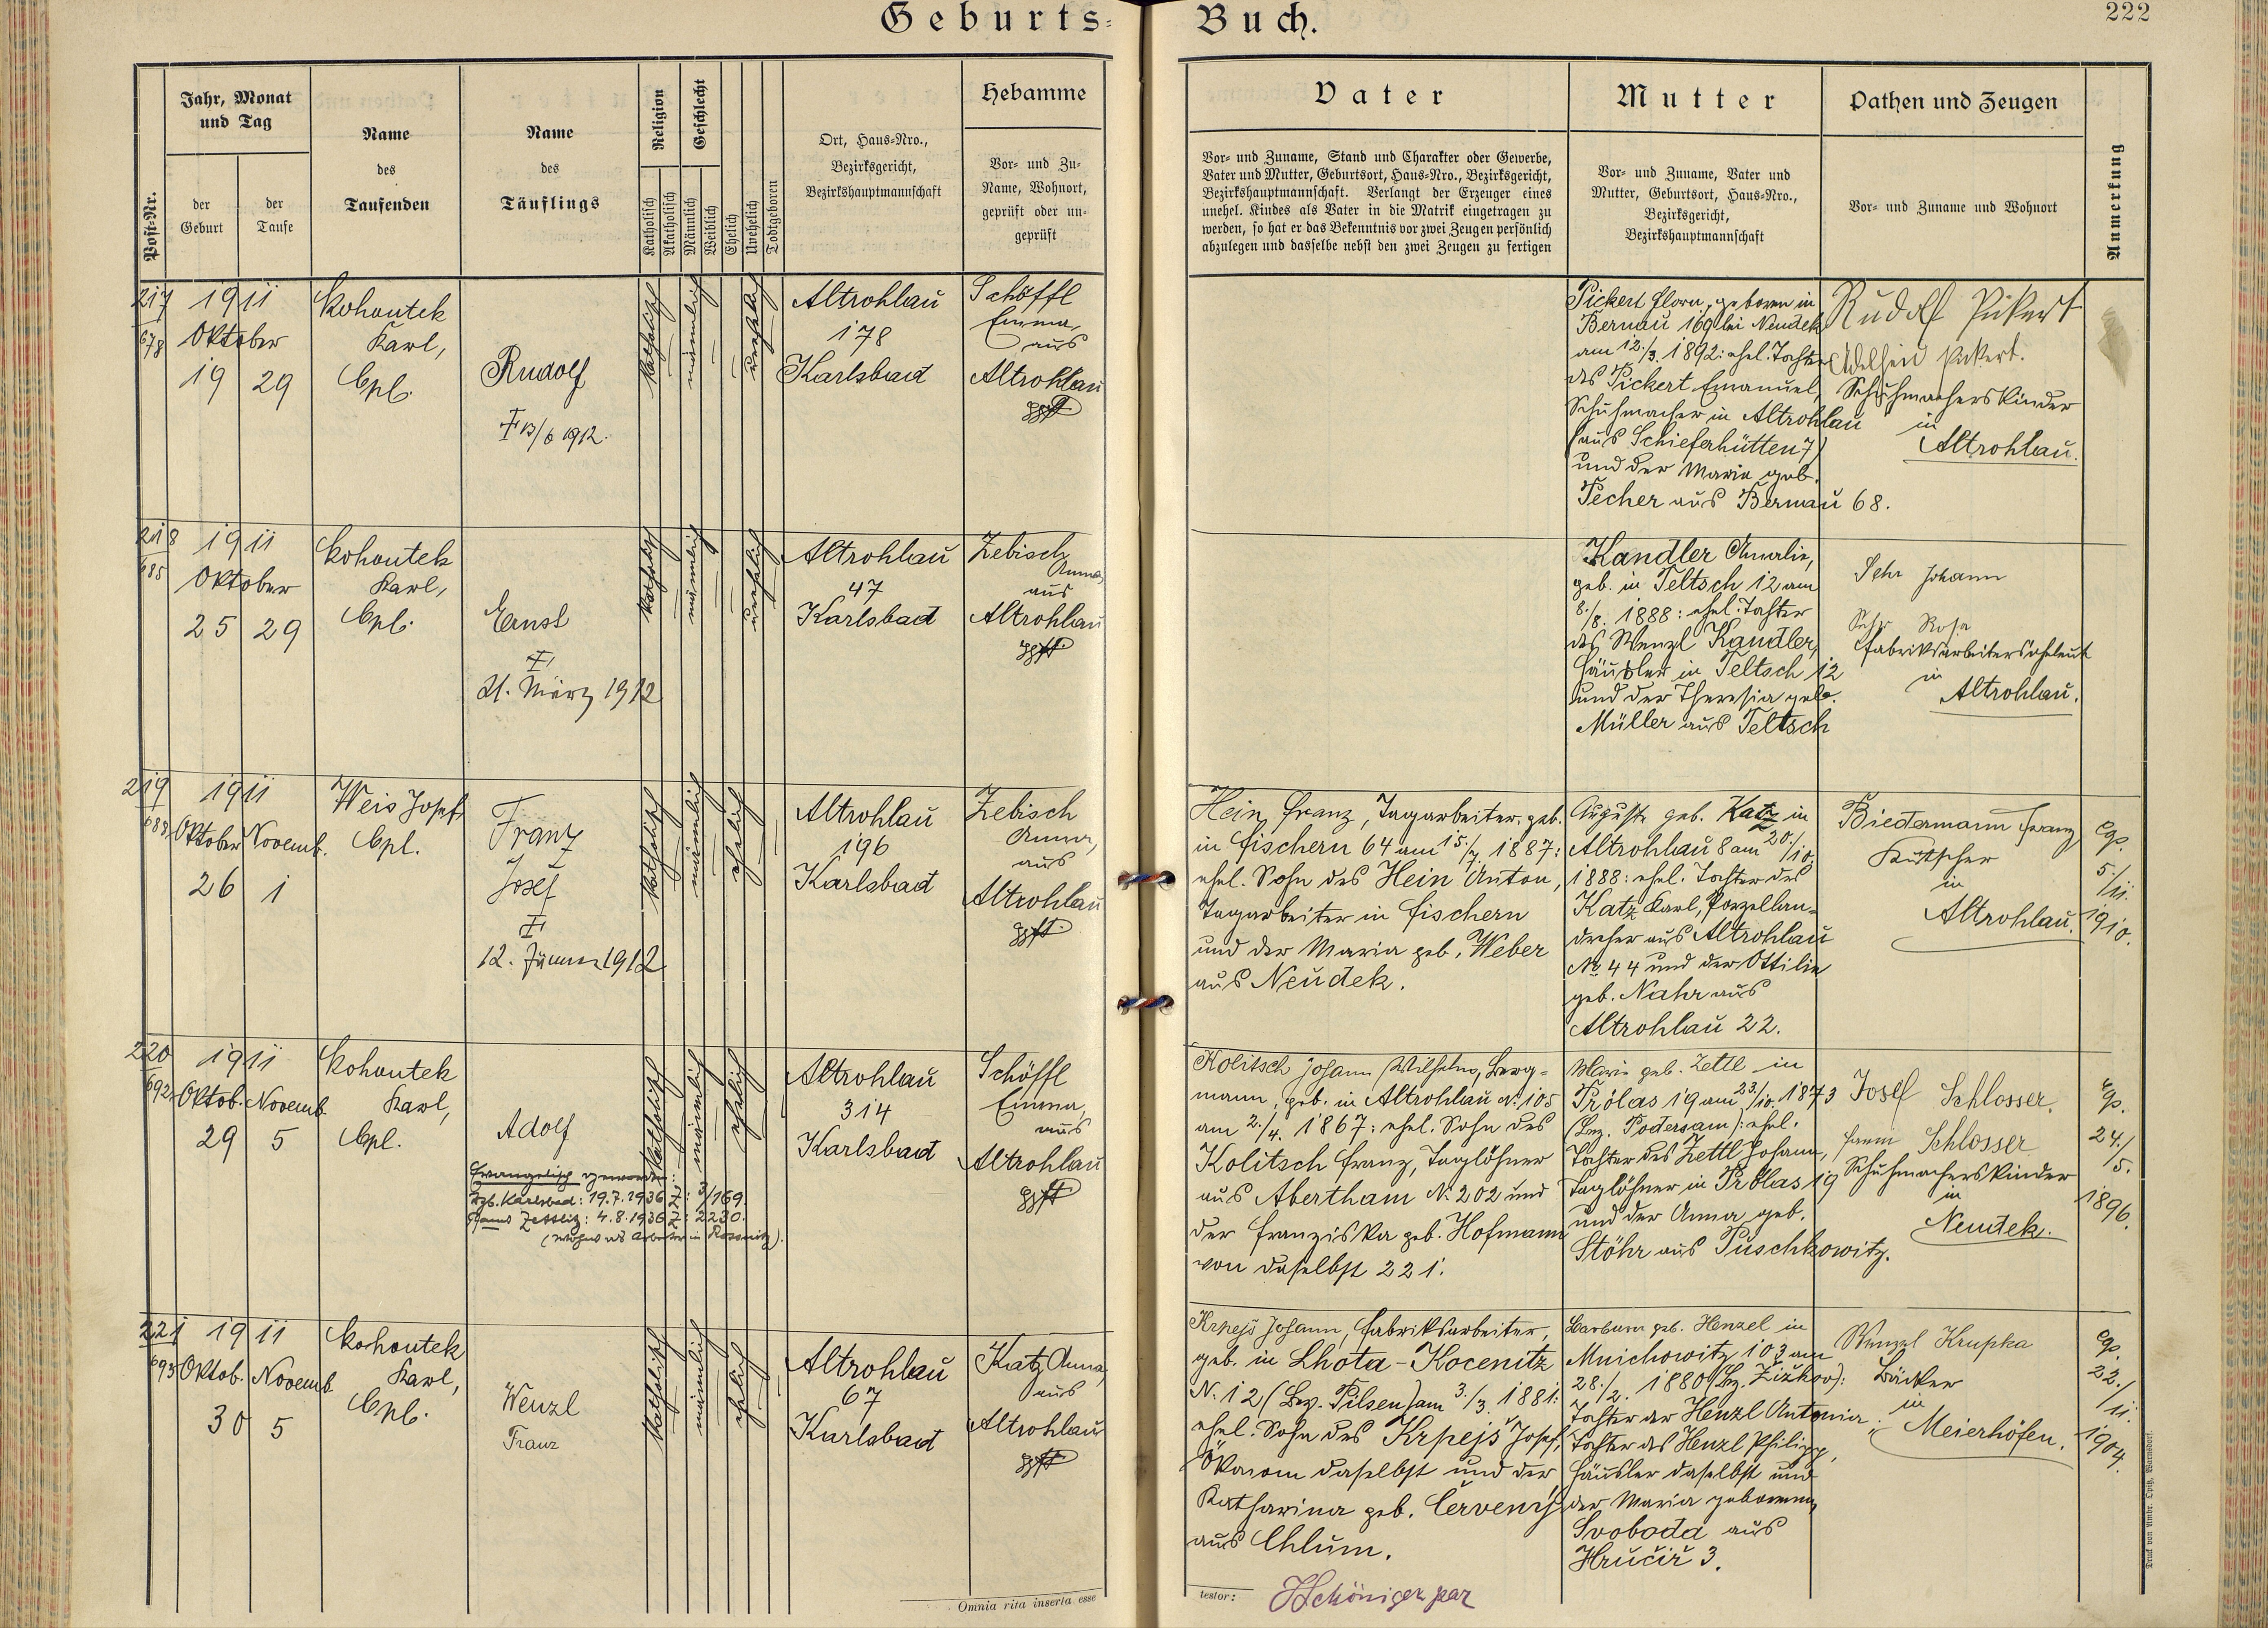 Geburts-Buch.
222
Post-Nr.
Jahr, Monat
und Tag
der
Geburt
der
Taufe
Name
des
Taufenden
Name
des
Täuflings
Religion
Katholisch
Akatholisch
Geschlecht
Männlich
Weiblich
Ehelich
Unehelich
Todtgeboren
Ort, Haus-Nro.,
Bezirksgericht,
Bezirkshauptmannschaft
Hebamme
Vor- und Zu-
Name, Wohnort,
geprüft oder un-
geprüft
Vater
Vor- und Zuname, Stand und Charakter oder Gewerbe,
Vater und Mutter, Geburtsort, Haus-Nro., Bezirksgericht,
Bezirkshauptmannschaft. Verlangt der Erzeuger eines
unehel. Kindes als Vater in die Matrik eingetragen zu
werden, so hat er das Bekenntnis vor zwei Zeugen persönlich
abzulegen und dasselbe nebst den zwei Zeugen zu fertigen
Mutter
Vor- und Zuname, Vater und
Mutter, Geburtsort, Haus-Nro.,
Bezirksgericht,
Bezirkshauptmannschaft
Pathen und Zeugen
Vor- und Zuname und Wohnort
Anmerkung
217
678
1911
Oktober
19 29
Kohoutek
Karl,
Cpl.
Rudolf
† 13/6 1912.
katholisch
männlich
unehelich
Altrohlau
178
Karlsbad
Schöffl
Emma,
aus
Altrohlau
gpft
Pickert Flora, geboren in
Bernau 169 bei Neudek
am 12./3. 1892: ehel. Tochter
des Pickert Emanuel,
Schuhmacher in Altrohlau
(aus Schieferhütten 7)
und der Maria geb.
Pecher aus Bernau 68.
Rudolf Pikert
Adelheid Pikert.
Schuhmacherskinder
in
Altrohlau.
218
685
1911
Oktober
25 29
Kohoutek
Karl,
Cpl.
Ernst
†
21. März 1912
katholisch
männlich
unehelich
Altrohlau
47
Karlsbad
Zebisch
Anna,
aus
Altrohlau
gpft
Kandler Amalie,
geb. in Teltsch 12 am
8./8. 1888: ehel. Tochter
des Wenzl Kandler,
Häusler in Teltsch 12
und der Theresia geb.
Müller aus Teltsch
Sehr Johann
Sehr Rosa
Fabriksarbeiterseheleut
in
Altrohlau.
219
688
1911
Oktober Novemb.
26 1
Weis Josef
Cpl.
Franz
Josef
†
12. Jänner 1912
katholisch
männlich
ehelich
Altrohlau
196
Karlsbad
Zebisch
Anna,
aus
Altrohlau
gpft
Hein Franz, Tagarbeiter, geb.
in Fischern 64 am 15./7. 1887:
ehel. Sohn des Hein Anton,
Tagarbeiter in Fischern
und der Maria geb. Weber
aus Neudek.
Auguste geb. Katz in
Altrohlau 8 am 20./10.
1888: ehel. Tochter des
Katz Karl, Porzellan-
dreher aus Altrohlau
No 44 und der Ottilie
geb. Nahr aus
Altrohlau 22.
Biedermann Franz
Kutscher
in
Altrohlau.
cop.
5/11.
1910.
220
692
1911
Oktob. Novemb.
29 5
Kohoutek
Karl,
Cpl.
Adolf
Evangelisch geworden:
Bzb. Karlsbad: 19.7.1936 Z: 3/169.
Pfamt Zettlitz: 4.8.1936 Z: 2230.
(wohnt als Arbeiter in Rossnitz).
katholisch
männlich
ehelich
Altrohlau
314
Karlsbad
Schöffl
Emma,
aus
Altrohlau
gpft
Kolitsch Johann Wilhelm, Berg-
mann, geb. in Altrohlau N. 105
am 2./4. 1867: ehel. Sohn des
Kolitsch Franz, Taglöhner
aus Abertham N. 202 und
der Franziska geb. Hofmann
von daselbst 221.
Marie geb. Zettl in
Prölas 19 am 23./10. 1873
(Bez. Podersam): ehel.
Tochter des Zettl Johann,
Taglöhner in Prölas 19
und der Anna geb.
Stöhr aus Puschkowitz.
Josef Schlosser.
Fanni Schlosser
Schuhmacherskinder
in
Neudek.
cop.
24./5.
1896.
221
693
1911
Oktob. Novemb.
30 5
Kohoutek
Karl,
Cpl.
Wenzl
Franz
katholisch
männlich
ehelich
Altrohlau
67
Karlsbad
Katz Anna,
aus
Altrohlau
gpft
Krpejš Johann, Fabriksarbeiter,
geb. in Lhota-Kocenitz
N. 12 (Bez. Pilsen) am 3./3. 1881:
ehel. Sohn des Krpejš Josef,
Ökonom daselbst und der
Katharina geb. Červený
aus Chlum.
Barbara geb. Henzel in
Mnichowitz 103 am
28./2. 1880 (Bz. Žižkov):
Tochter der Henzl Antonia;
Tochter des Henzl Philipp,
Häusler daselbst und
der Maria geborenen
Svoboda aus
Hručiř 3.
Wenzel Krupka
Bäcker
in
Meierhöfen.
cop.
22./11.
1904.
Omnia rita inserta esse
testor:
JSchöniger par
Druck von Ambr. Opitz, Warnsdorf.